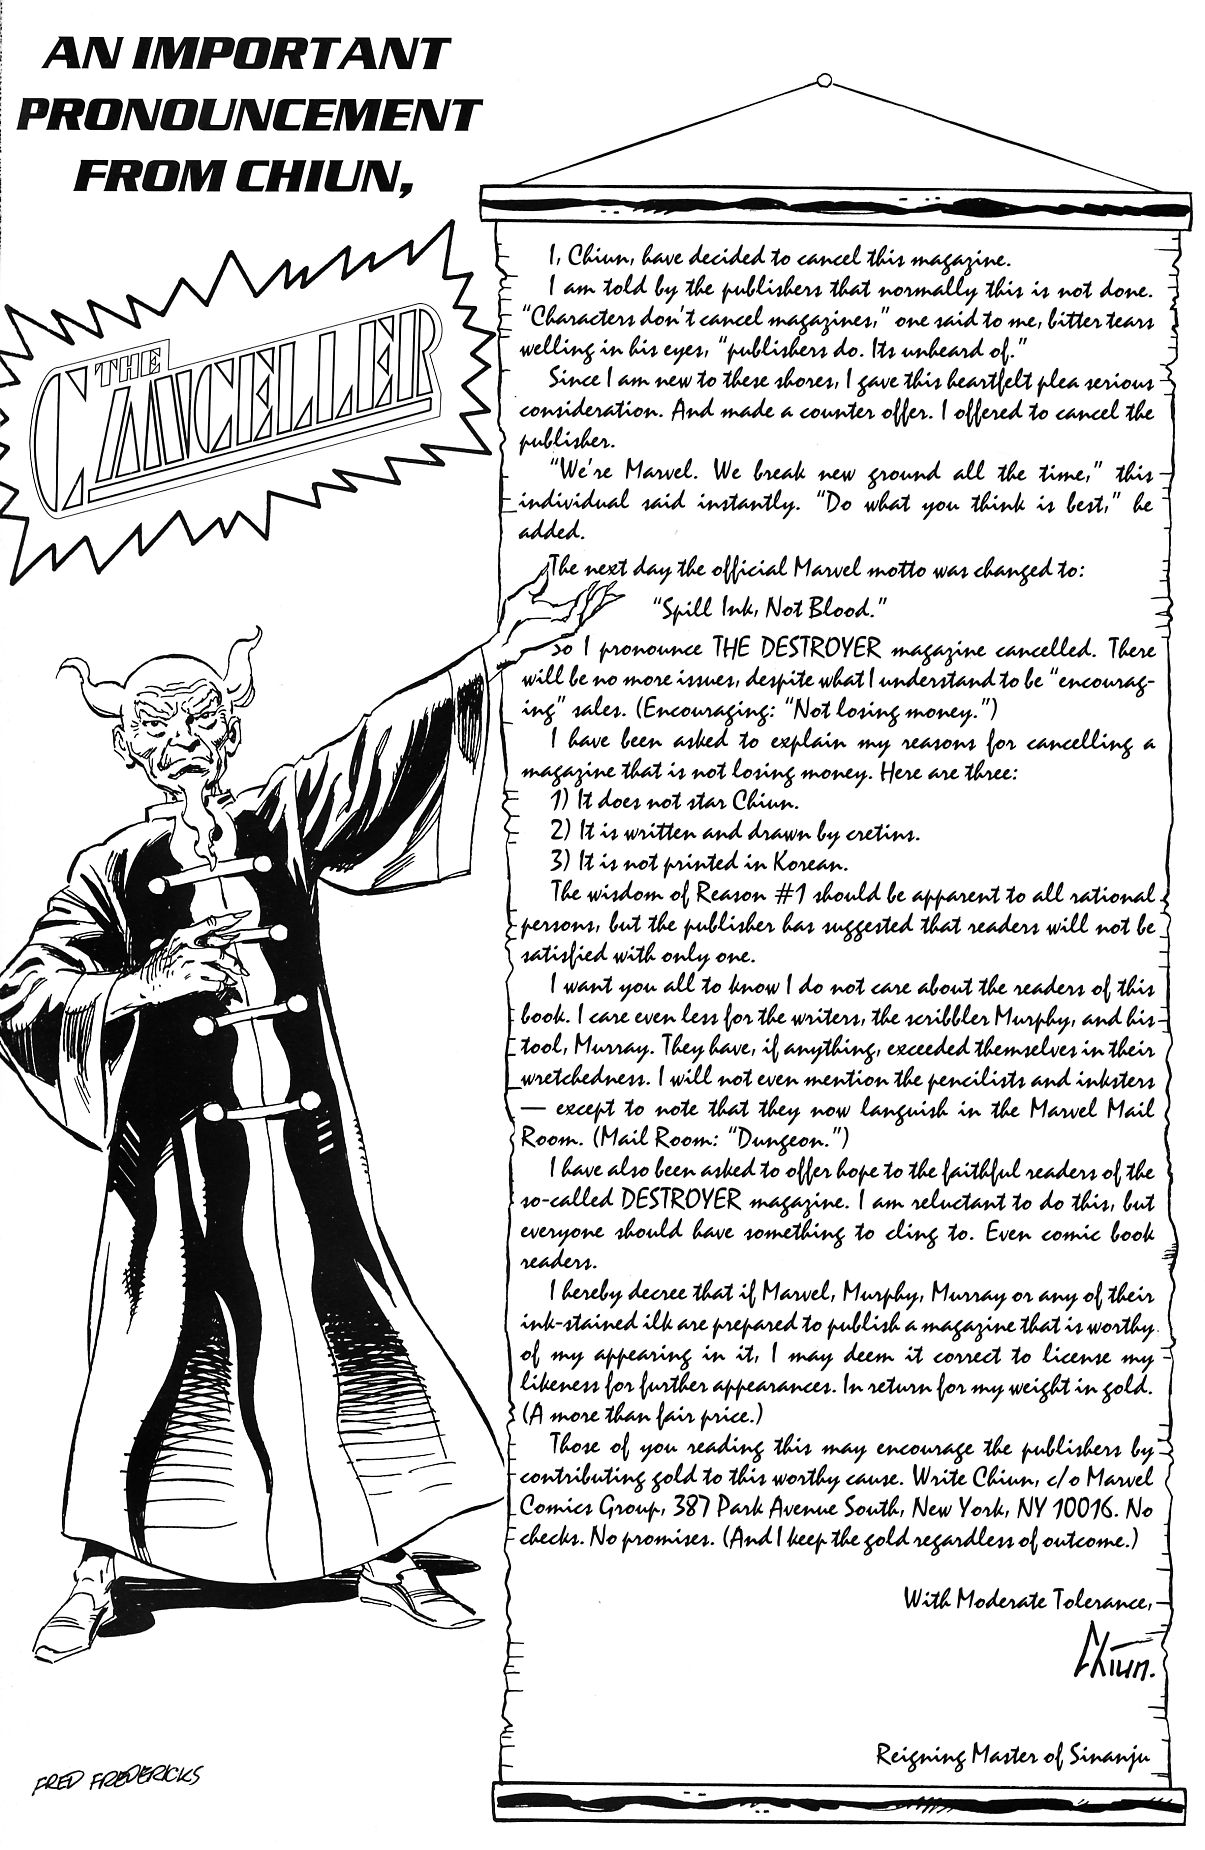 AN IMPORTANT
PRONOUNCEMENT
FROM CHIUN,
THE
CANCELLER
I, Chiun, have decided to cancel this magazine.
I am told by the publishers that normally this is not done.
“Characters don't cancel magazines,” one said to me, bitter tears
welling in his eyes, “publishers do. Its unheard of.”
Since I am new to these shores, I gave this heartfelt plea serious
consideration. And made a counter offer. I offered to cancel the
publisher.
“We're Marvel. We break new ground all the time,” this
individual said instantly. “Do what you think is best,” he
added.
The next day the official Marvel motto was changed to:
“Spill Ink, Not Blood.”
So I pronounce THE DESTROYER magazine cancelled. There
will be no more issues, despite what I understand to be “encourag-
ing” sales. (Encouraging: “Not losing money.”)
I have been asked to explain my reasons for cancelling a
magazine that is not losing money. Here are three:
1) It does not star Chiun.
2) It is written and drawn by cretins.
3) It is not printed in Korean.
The wisdom of Reason #1 should be apparent to all rational
persons, but the publisher has suggested that readers will not be
satisfied with only one.
I want you all to know I do not care about the readers of this
book. I care even less for the writers, the scribbler Murphy, and his
tool, Murray. They have, if anything, exceeded themselves in their
wretchedness. I will not even mention the pencilists and inksters
— except to note that they now languish in the Marvel Mail
Room. (Mail Room: “Dungeon.”)
I have also been asked to offer hope to the faithful readers of the
so-called DESTROYER magazine. I am reluctant to do this, but
everyone should have something to cling to. Even comic book
readers.
I hereby decree that if Marvel, Murphy, Murray or any of their
ink-stained ilk are prepared to publish a magazine that is worthy
of my appearing in it, I may deem it correct to license my
likeness for further appearances. In return for my weight in gold.
(A more than fair price.)
Those of you reading this may encourage the publishers by
contributing gold to this worthy cause. Write Chiun, c/o Marvel
Comics Group, 387 Park Avenue South, New York, NY 10016. No
checks. No promises. (And I keep the gold regardless of outcome.)
With Moderate Tolerance,
Chiun.
Reigning Master of Sinanju
FRED FREDERICKS